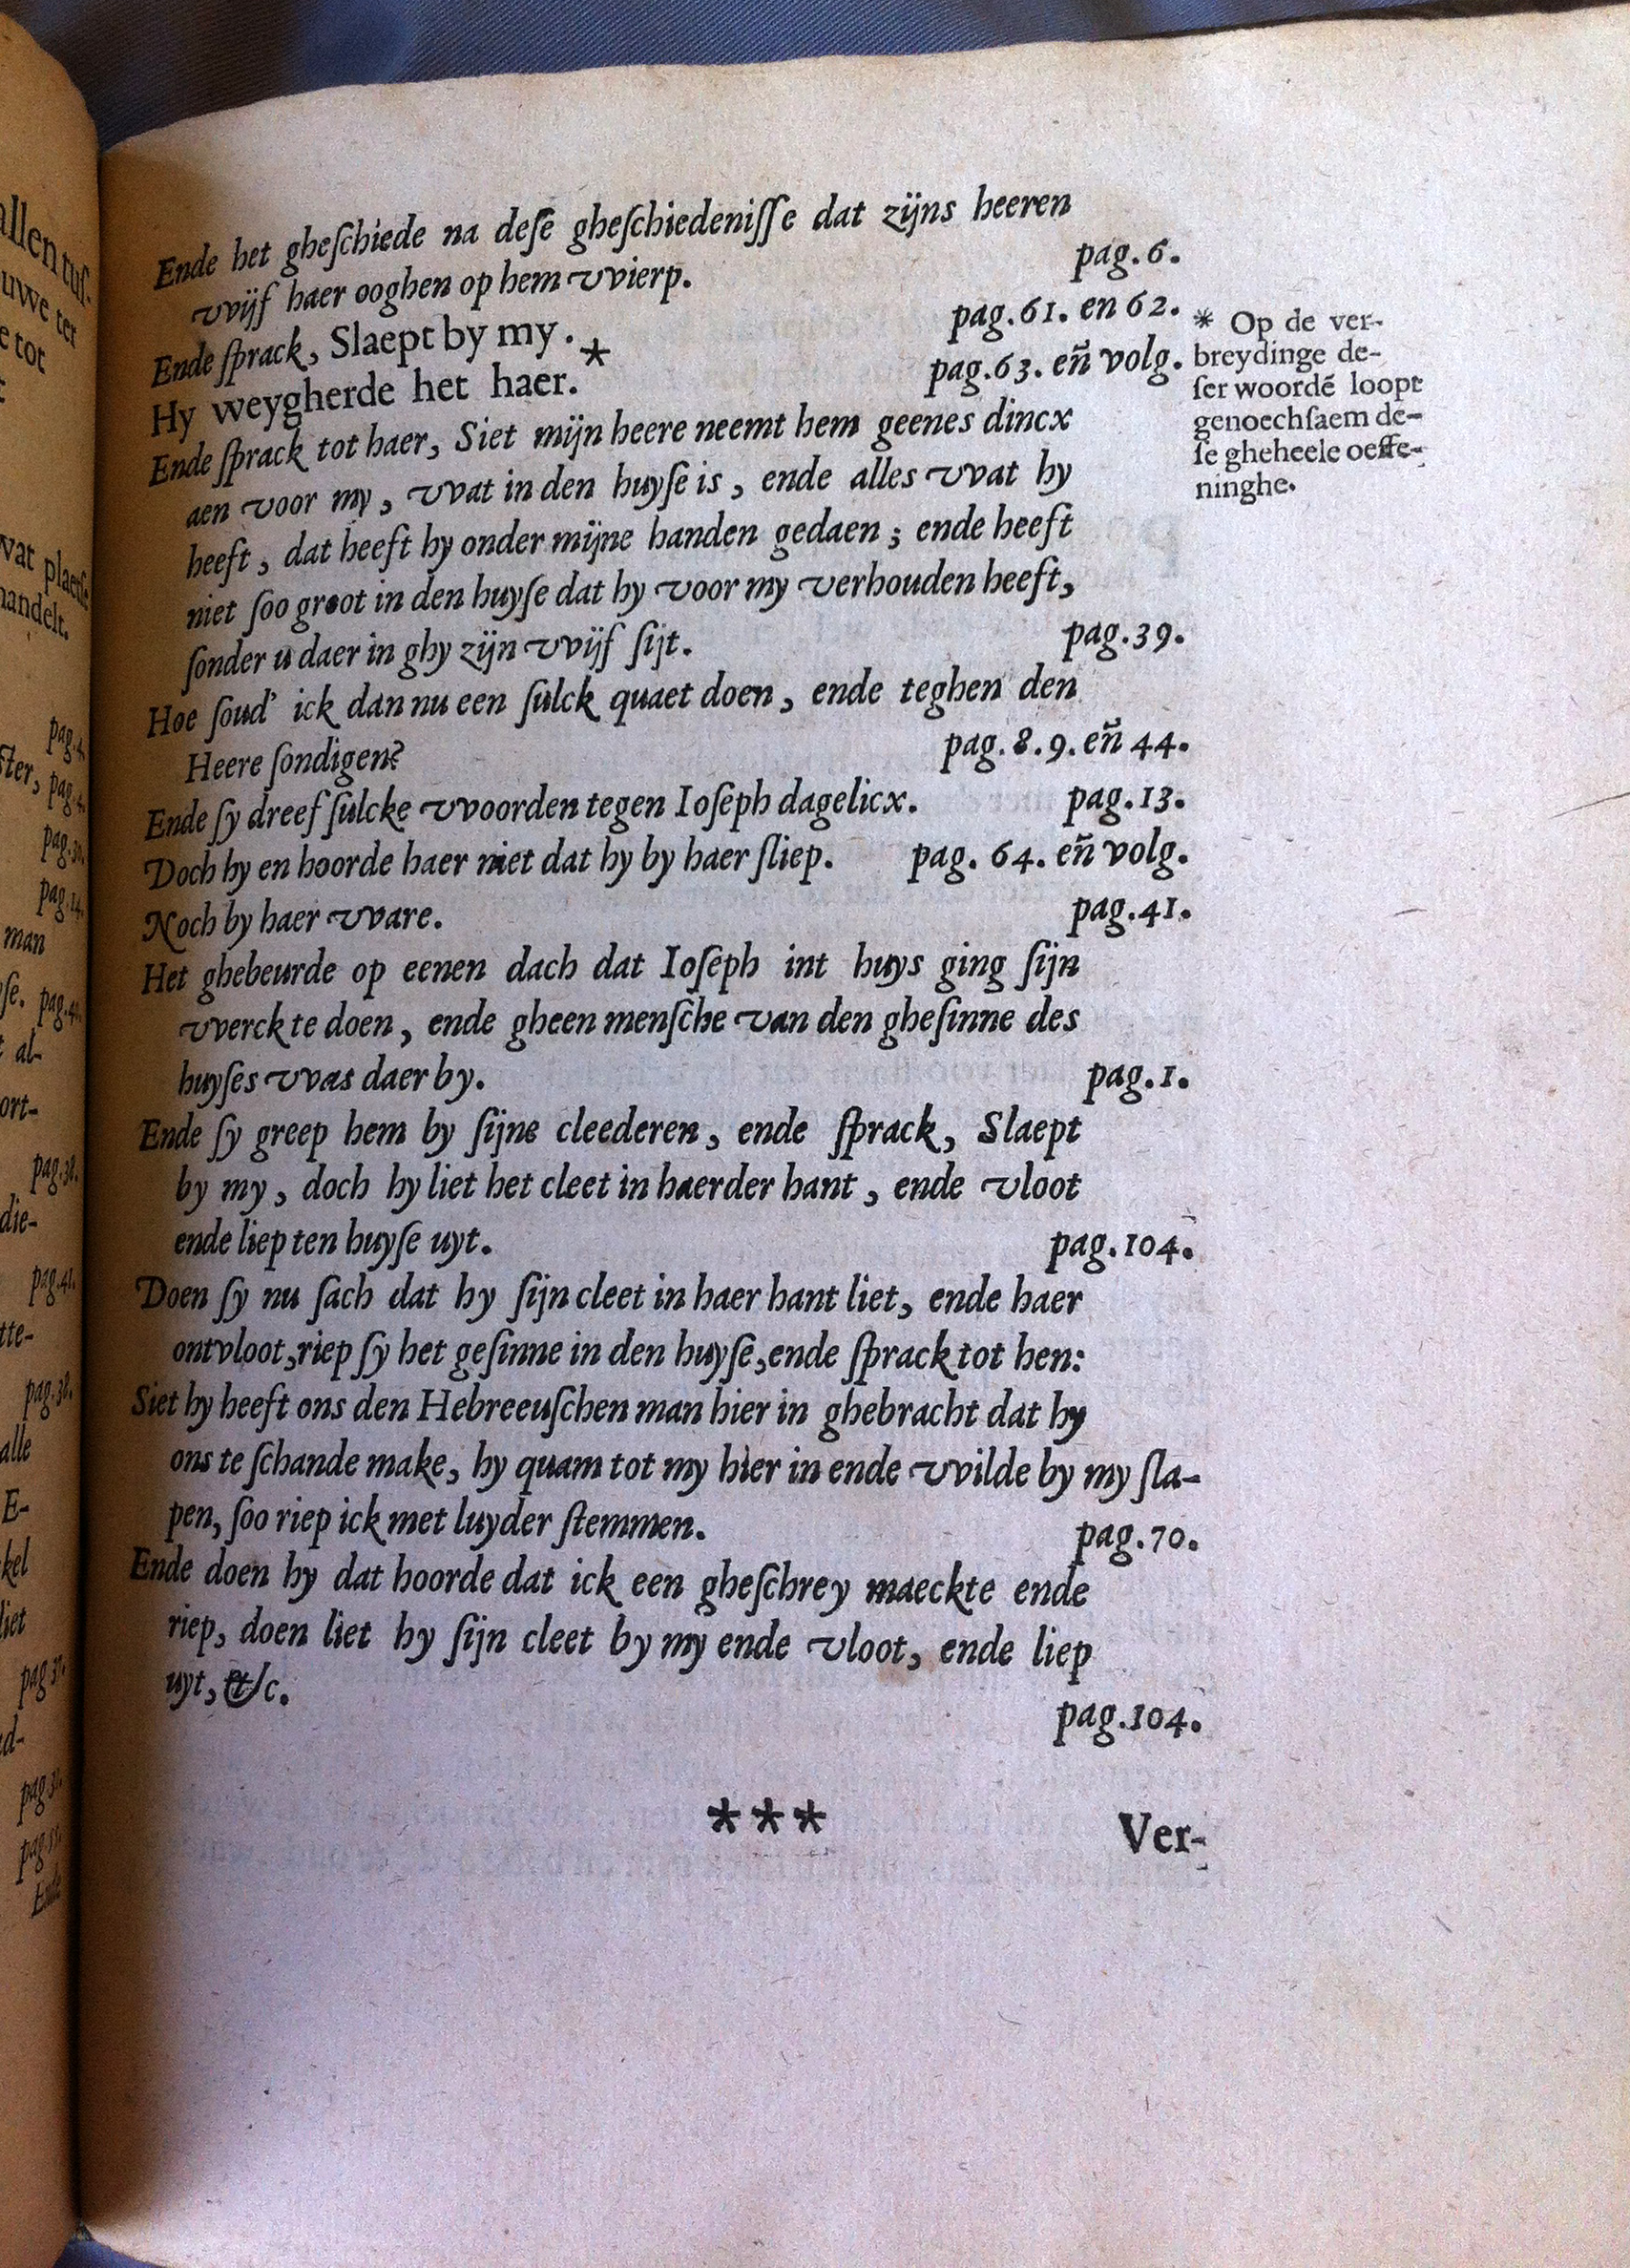 Ende het gheſchiede na deſe gheſchiedeniſſe dat zijns heeren
vvijf haer ooghen op hem vvierp. pag. 6.
Ende ſprack, Slaept by my. pag. 61. en 62.
Hy weygherde het haer.* pag. 63. eñ volg.
Ende ſprack tot haer, Siet mijn heere neemt hem geenes dincx
aen voor my, vvat in den huyſe is, ende alles vvat hy
heeft, dat heeft hy onder mijne handen gedaen; ende heeft
niet ſoo groot in den huyſe dat hy voor my verhouden heeft,
ſonder u daer in ghy zijn vvijf ſijt. pag. 39.
Hoe ſoud' ick dan nu een ſulck quaet doen, ende teghen den
Heere ſondigen? pag. 8. 9. eñ 44.
Ende ſy dreef ſulcke vvoorden tegen Ioſeph dagelicx. pag. 13.
Doch hy en hoorde haer niet dat hy by haer ſliep. pag. 64. eñ volg.
Noch by haer vvare. pag. 41.
Het ghebeurde op eenen dach dat Ioſeph int huys ging ſijn
vverck te doen, ende gheen menſche van den gheſinne des
huyſes vvas daer by. pag. 1.
Ende ſy greep hem by ſijne cleederen, ende ſprack, Slaept
by my, doch hy liet het cleet in haerder hant, ende vloot
ende liep ten huyſe uyt. pag. 104.
Doen ſy nu ſach dat hy ſijn cleet in haer hant liet, ende haer
ontvloot, riep ſy het geſinne in den huyſe, ende ſprack tot hen:
Siet hy heeft ons den Hebreeuſchen man hier in ghebracht dat hy
ons te ſchande make, hy quam tot my hier in ende vvilde by my ſla-
pen, ſoo riep ick met luyder ſtemmen. pag. 70.
Ende doen hy dat hoorde dat ick een gheſchrey maeckte ende
riep, doen liet hy ſijn cleet by my ende vloot, ende liep
uyt, &c. pag. 104.
* * *
Ver-
* Op de ver-
breydinge de-
ſer woordē loopt
genoechſaem de-
ſe gheheele oeffe-
ninghe.
allen tuſ-
uwe ter
e tot
wat plaetſe
handelt.
pag. 4.
ſter, pag. 4.
pag. 14.
man
ſe. pag. 40.
al-
ort-
pag. 38.
die-
pag. 41.
tte-
pag. 38.
alle
E-
kel
liet
pag. 37.
Ende